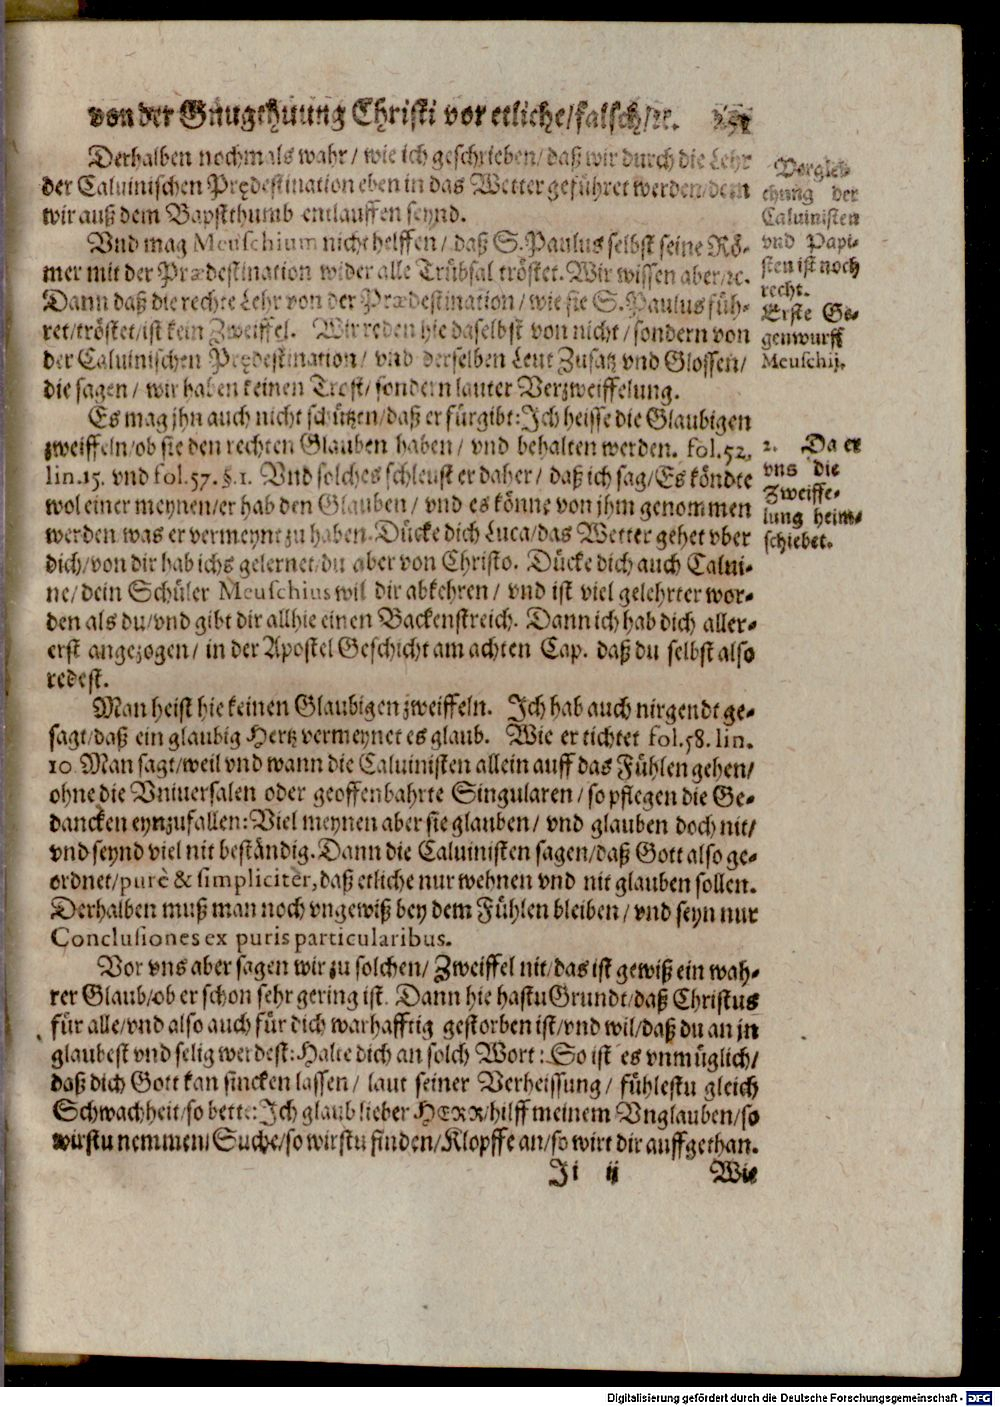 von der Gnugthuung Christi vor etliche/falsch/ꝛc.
Derhalben nochmals wahr/ wie ich geschrieben/ daß wir durch die Lehr
der Caluinischen Prędestination eben in das Wetter geführet werden/dem
wir auß dem Bapstthumb entlauffen seynd.
Vnd mag Meuschium nicht helffen/ daß S. Paulus selbst seine Rö-
mer mit der Prædestination wider alle Trübsal tröstet. Wir wissen aber/ꝛc.
Dann daß die rechte Lehr von der Prædestination/ wie sie S. Paulus füh-
ret/tröstet/ist kein Zweiffel. Wir reden hie daselbst von nicht/ sondern von
der Caluinischen Prędestination/ vnd derselben Leut Zusatz vnd Glossen/
die sagen/ wir haben keinen Trost/ sondern lauter Verzweiffelung.
Es mag jhn auch nicht schützen/ daß er fürgibt: Ich heisse die Glaubigen
zweiffeln/ob sie den rechten Glauben haben/ vnd behalten werden. fol.52.
lin.15. vnd fol.57. §.1. Vnd solches schleust er daher/ daß ich sag/ Es köndte
wol einer meynen/er hab den Glauben/ vnd es könne von jhm genommen
werden was er vermeynt zu haben. Dücke dich Luca/das Wetter gehet vber
dich/von dir hab ichs gelernet/du aber von Christo. Dücke dich auch Calui-
ne/ dein Schüler Meuschius wil dir abkehren/ vnd ist viel gelehrter wor-
den als du/vnd gibt dir allhie einen Backenstreich. Dann ich hab dich aller-
erst angezogen/ in der Apostel Geschicht am achten Cap. daß du selbst also
redest.
Man heist hie keinen Glaubigen zweiffeln. Ich hab auch nirgendt ge-
sagt/daß ein glaubig Hertz vermeynet es glaub. Wie er tichtet fol.58. lin.
10 Man sagt/weil vnd wann die Caluinisten allein auff das Fühlen gehen/
ohne die Vniuersalen oder geoffenbahrte Singularen/ so pflegen die Ge-
dancken eynzufallen: Viel meynen aber sie glauben/ vnd glauben doch nit/
vnd seynd viel nit beständig. Dann die Caluinisten sagen/daß Gott also ge-
ordnet/purè & simplicitèr, daß etliche nur wehnen vnd nit glauben sollen.
Derhalben muß man noch vngewiß bey dem Fühlen bleiben/ vnd seyn nur
Conclusiones ex puris particularibus.
Vor vns aber sagen wir zu solchen/ Zweiffel nit/das ist gewiß ein wah-
rer Glaub/ob er schon sehr gering ist. Dann hie hastu Grundt/daß Christus
für alle/vnd also auch für dich warhafftig gestorben ist/vnd wil/daß du an jn
glaubest vnd selig werdest: Halte dich an solch Wort: So ist es vnmüglich/
daß dich Gott kan sincken lassen/ laut seiner Verheissung/ fühlestu gleich
Schwachheit/so bette: Ich glaub lieber HERR/hilff meinem Vnglauben/so
wirstu nemmen/Suche/so wirstu finden/Klopffe an/so wirt dir auffgethan.
Ii ij Wie
Verglei-
chung der
Caluinisten
vnd Papi-
sten ist noch
recht.
Erste Ge-
genwurff
Meuschij.
2. Da er
vns die
Zweiffe-
lung heim-
schiebet.
Digitalisierung gefördert durch die Deutsche Forschungsgemeinschaft - DFG